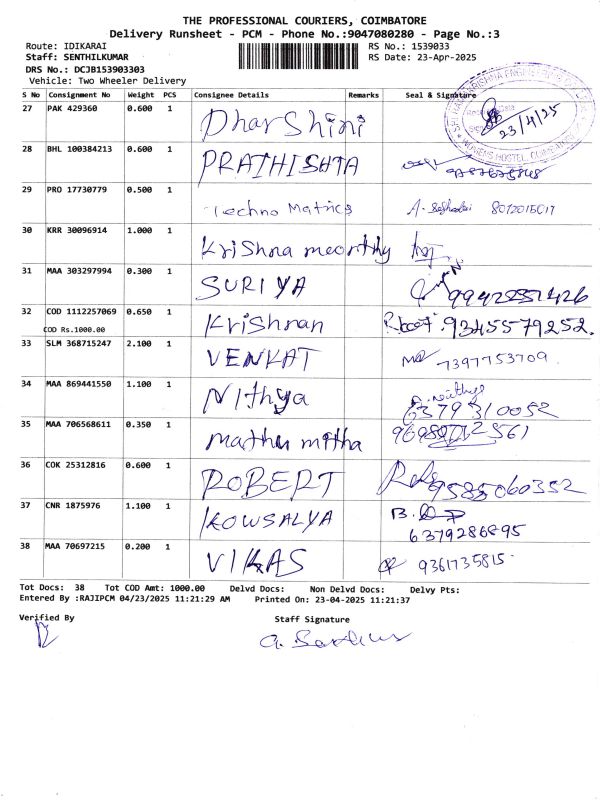 THE PROFESSIONAL COURIERS, COIMBATORE
Delivery Runsheet - PCM - Phone No.:9047080280 - Page No.:3
Route: IDIKARAI RS No.: 1539033
Staff: SENTHILKUMAR RS Date: 23-Apr-2025
DRS No.: DCJB153903303
Vehicle: Two Wheeler Delivery
S No Consignment No Weight PCS Consignee Details Remarks Seal & Signature
27 PAK 429360 0.600 1 Dharshini 23/4/25
28 BHL 100384213 0.600 1 PRATHISHTA
29 PRO 17730779 0.500 1 Techno Matrics 8012015017
30 KRR 30096914 1.000 1 Krishna moorthy
31 MAA 303297994 0.300 1 SURIYA
32 COD 1112257069 0.650 1 Krishnan 9345579252.
COD Rs.1000.00
33 SLM 368715247 2.100 1 VENKAT 7397753709
34 MAA 869441550 1.100 1 Nithya 6379310052
35 MAA 706568611 0.350 1
36 COK 25312816 0.600 1 ROBERT 9585060352
37 CNR 1875976 1.100 1 KOWSALYA 6379286895
38 MAA 70697215 0.200 1 VIKAS 9361735815
Tot Docs: 38 Tot COD Amt: 1000.00 Delvd Docs: Non Delvd Docs: Delvy Pts:
Entered By :RAJIPCM 04/23/2025 11:21:29 AM Printed On: 23-04-2025 11:21:37
Verified By Staff Signature